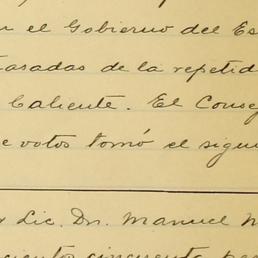 n el Gobierno del Es
tasadas de la repetid
Caliente. El Conse
e votos tomó el sigu
Lic. Dn. Manuel M
ciento cincuenta pe